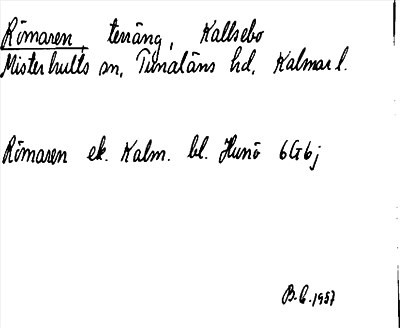 Römaren, terräng, Kallsebo
Misterhults sn, Tunaläns hd, Kalmar l.
Römaren ek. Kalm. bl. Hunö 6G6j
B.G. 1957